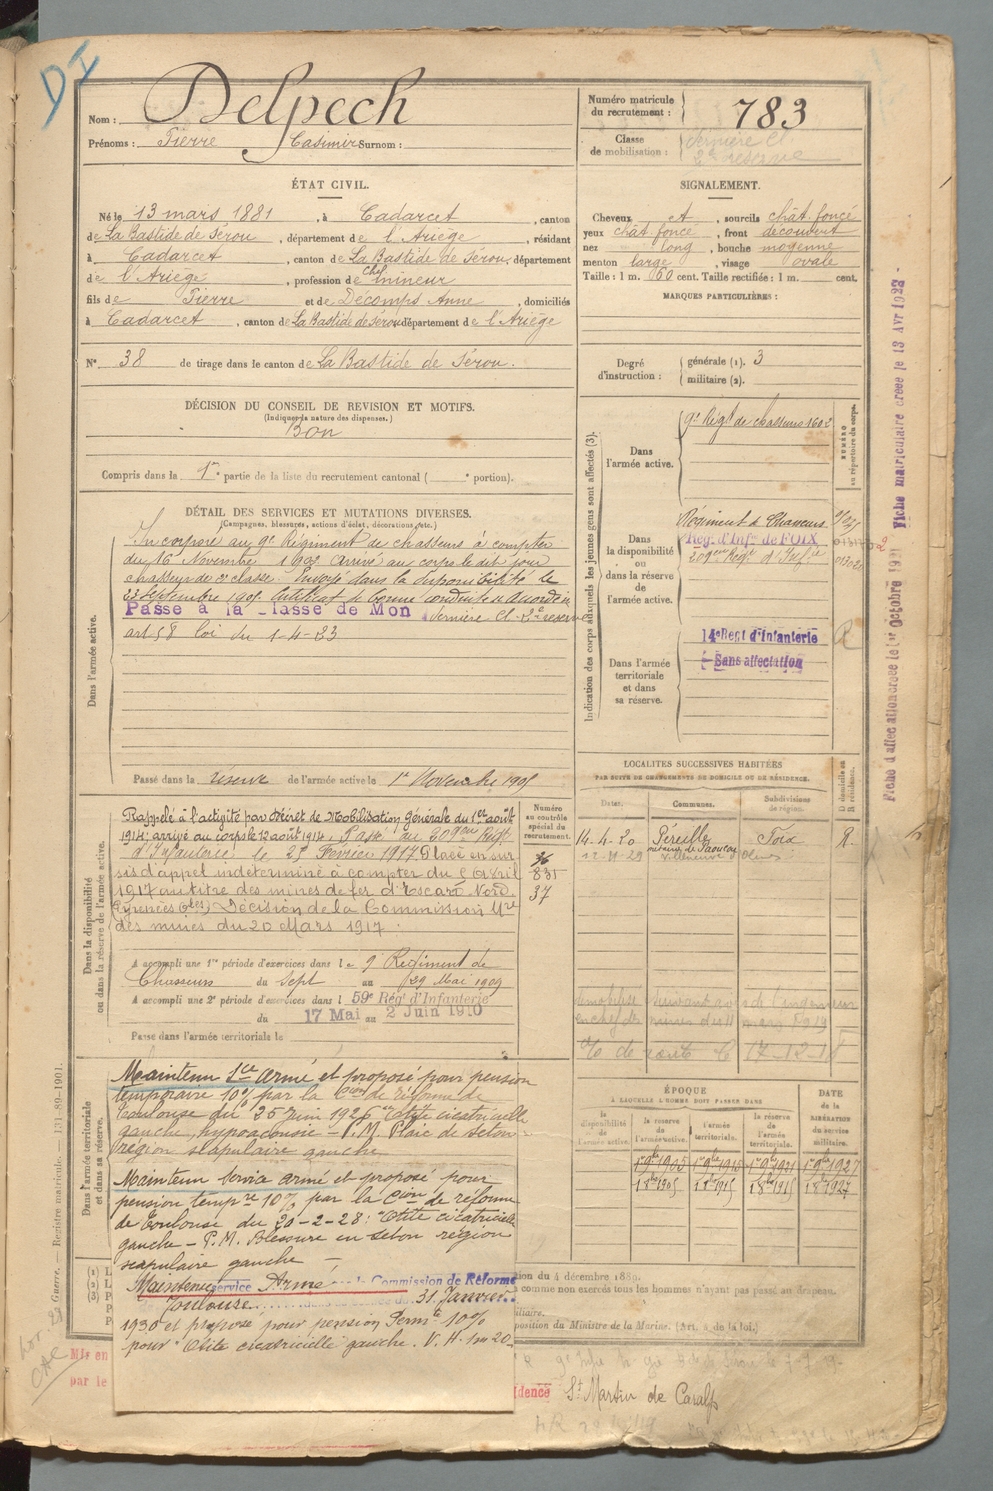 DI
Nom : Delpech
Prénoms : Pierre Casimir Surnom :
Numéro matricule du recrutement : 783
Classe de mobilisation : dernière Cl. 2e réserve
ÉTAT CIVIL.
Né le 13 mars 1881, à Cadarcet, canton
de La Bastide de Sérou, département de l'Ariège, résidant
à Cadarcet, canton de La Bastide de Sérou, département
de l'Ariège, profession de mineur
fils de Pierre et de Décomps Anne, domiciliés
à Cadarcet, canton de La Bastide de Sérou, département de l'Ariège
N° 38 de tirage dans le canton de La Bastide de Sérou.
SIGNALEMENT.
Cheveux et, sourcils chât. foncé
yeux chât. foncé, front découvert
nez long, bouche moyenne
menton large, visage ovale
Taille : 1 m. 60 cent. Taille rectifiée : 1 m. cent.
MARQUES PARTICULIÈRES :
Degré d'instruction : générale (1). 3
militaire (2).
DÉCISION DU CONSEIL DE REVISION ET MOTIFS.
(Indiquer la nature des dispenses.)
Bon
Compris dans la 1re partie de la liste du recrutement cantonal ( e portion).
DÉTAIL DES SERVICES ET MUTATIONS DIVERSES.
(Campagnes, blessures, actions d'éclat, décorations, etc.)
Dans l'armée active.
Incorporé au 9e Régiment de chasseurs à compter
du 16 Novembre 1902 arrivé au corps le dit jour
chasseur de 2e classe. Envoyé dans la disponibilité le
23 Septembre 1905. Certificat de bonne conduite "Accordé"
Passé à la Classe de Mon dernière Cl. 2e réserve
art 58 loi du 1-4-23
Passé dans la réserve de l'armée active le 1er Novembre 1905
Indication des corps auxquels les jeunes gens sont affectés (3).
NUMÉRO au répertoire du corps.
Dans l'armée active.
9e Régt de chasseurs 1602
Dans la disponibilité ou dans la réserve de l'armée active.
Régiment de Chasseurs
Rég. d'Infie de FOIX
209eme Regt d'Infie
Dans l'armée territoriale et dans sa réserve.
14e Regt d'Infanterie
Sans affectation
R
Fiche d'affectation créée le 1er Octobre
Fiche matriculaire créée le 13 Avr
Dans la disponibilité ou dans la réserve de l'armée active.
Numéro au contrôle spécial du recrutement.
36
835
37
Rappelé à l'activité par décret de Mobilisation Générale du 1er août
1914: arrivé au corps le 12 août 1914. Passé au 209eme Régt
d'Infanterie le 25 Février 1917 Placé en sur
sis d'appel indéterminé à compter du 6 Avril
1917 au titre des mines de fer d'Escaro Nord
(Pyrénées Oles) Décision de la Commission Mre
des mines du 20 Mars 1917.
A accompli une 1re période d'exercices dans le 9e Régiment de
Chasseurs du Sept au 29 Mai 1909
A accompli une 2e période d'exercices dans l 59e Régt d'Infanterie
du 17 Mai au 2 Juin 1910
Passé dans l'armée territoriale le
LOCALITÉS SUCCESSIVES HABITÉES
PAR SUITE DE CHANGEMENTS DE DOMICILE OU DE RÉSIDENCE.
Dates. Communes. Subdivisions de région. D domicile ou R résidence.
14-4-20 Péreille Foix R.
12-11-29 Villeneuve d'Olmes
Dans l'armée territoriale et dans sa réserve.
Maintenu Sce armé et proposé pour pension
temporaire 10% par la Cion de réforme de
Toulouse du 25 Juin 1926 "Otite cicatricielle
gauche, hypoacousie - P.M. Plaie de séton
région scapulaire gauche
Maintenu service armé et proposé pour
pension tempre 10% par la Cion de réforme
de Toulouse du 20-2-28: "Otite cicatricielle
gauche - P.M. Blessure en séton région
scapulaire gauche
Maintenu service Armé la Commission de Réforme
Toulouse 31 Janvier
1930 et proposé pour pension Permte 10%
pour "Otite cicatricielle gauche. V. H. 1m20
ÉPOQUE
À LAQUELLE L'HOMME DOIT PASSER DANS
la disponibilité de l'armée active. la réserve de l'armée active. l'armée territoriale. la réserve de l'armée territoriale. DATE de la LIBÉRATION du service militaire.
1er 9bre 1905 1er 9bre 1915 1er 9bre 1921 1er 9bre 1927
tion du 4 décembre 1889.
comme non exercés tous les hommes n'ayant pas passé au drapeau.
iliaire.
position du Ministre de la Marine. (Art. 4 de la loi.)
Guerre. — Registre matricule. — 131-89-1901.
par le
idence St Martin de Caralp